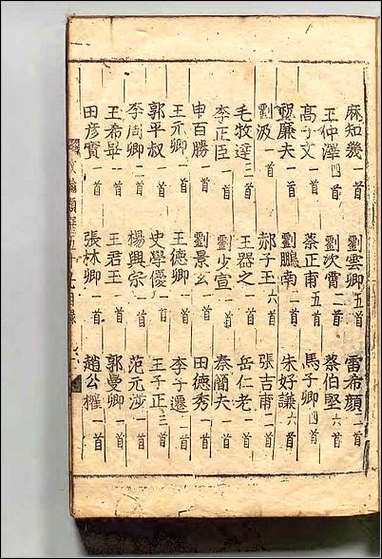 麻知幾一首 劉雲卿五首 雷希顏二首
王仲澤四首 劉次霄二首 蔡伯堅六首
高子文一首 蔡正甫五首 馬子卿四首
郭廉夫一首 劉鵬南一首 朱好謙六首
劉汲一首 郝子玉六首 張吉甫二首
毛牧達三首 王器之一首 岳仁老一首
李正臣一首 劉少宣一首 秦簡夫一首
申百勝一首 劉景玄一首 田德秀一首
王元卿一首 王德卿一首 李子遷一首
郭平叔一首 史學優一首 王子正三首
李周卿二首 楊興宗一首 范元涉一首
王希 一首 王君玉一首 郭曼卿一首
田彥實一首 張林卿一首 趙公權一首
目錄